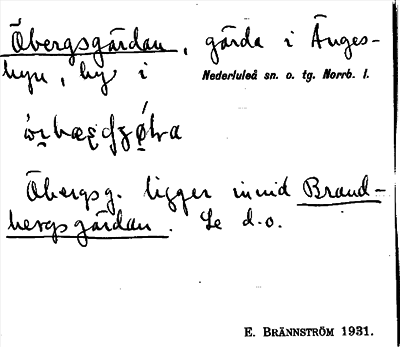 Öbergsgärdan, gärda i Änges-
byn, by i
Nederluleå sn. o. tg. Norrb. l.
Öbergsg. ligger invid Brand-
bergsgärdan. Se d.o.
E. BRÄNNSTRÖM 1931.